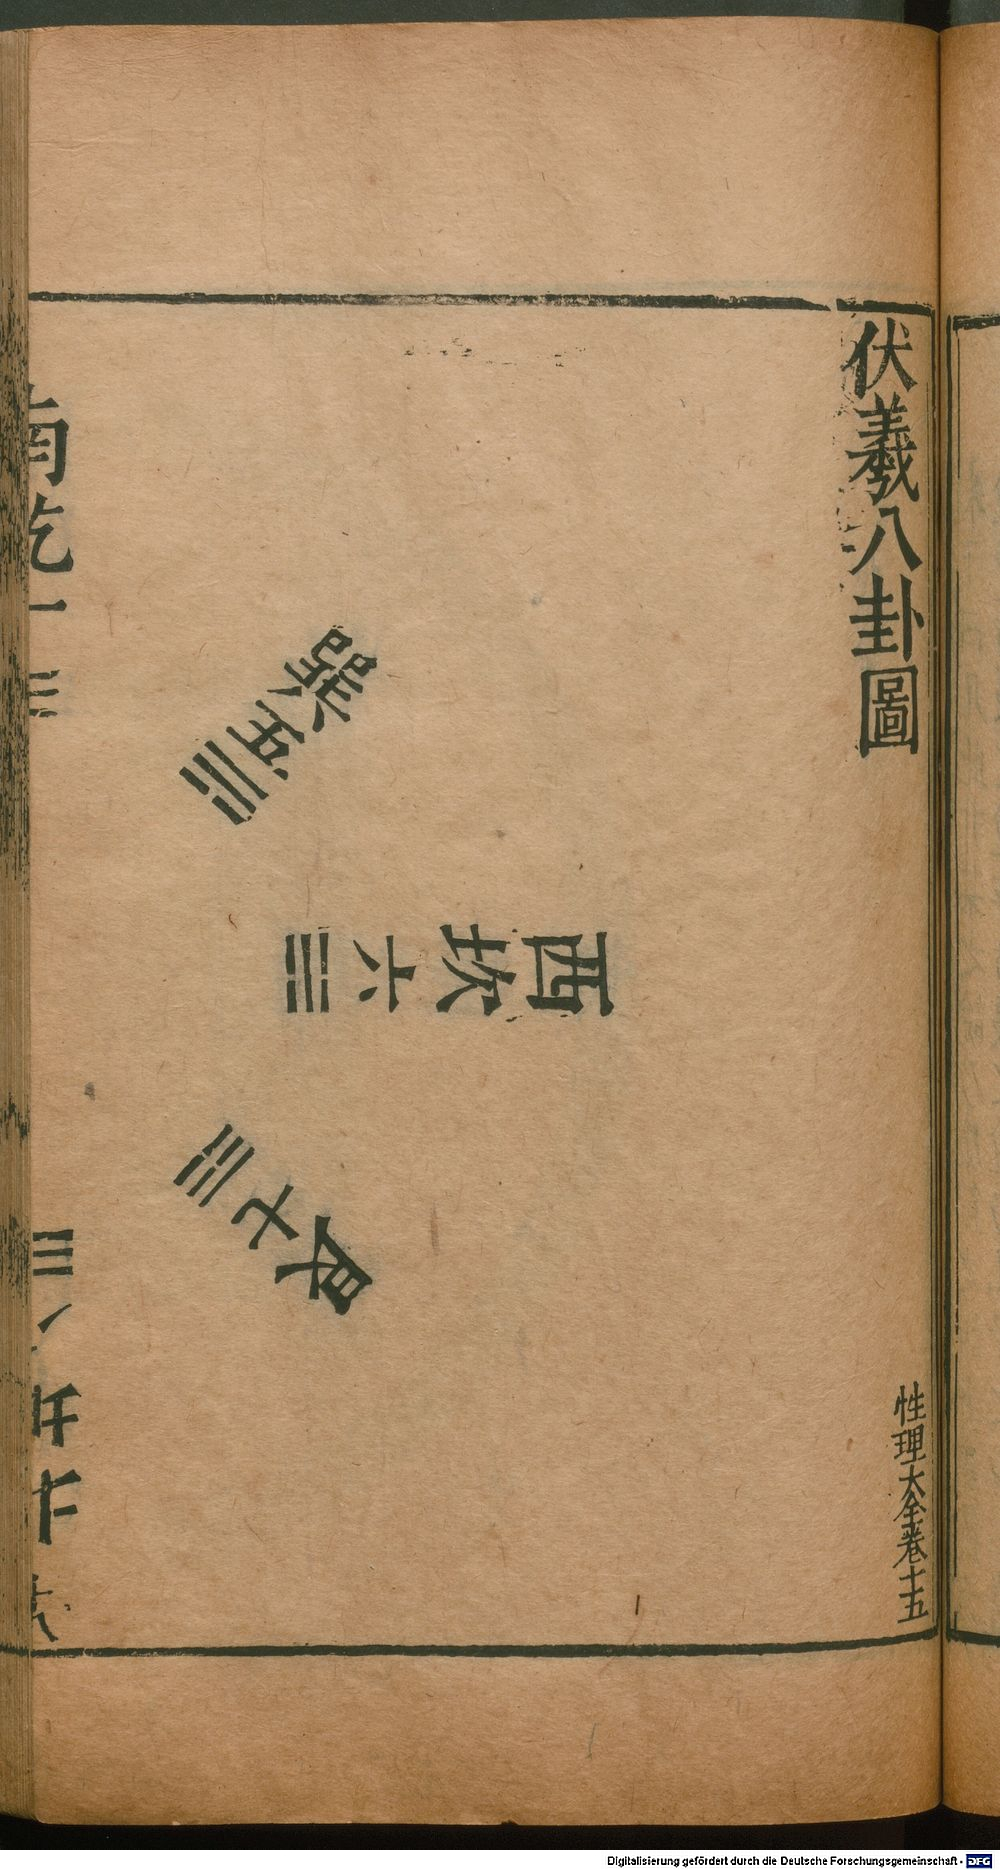 伏羲八卦圖
性理大全卷十五
巽五☴
西坎六☵
艮七☶
南乾一☰
Digitalisierung gefördert durch die Deutsche Forschungsgemeinschaft - DFG